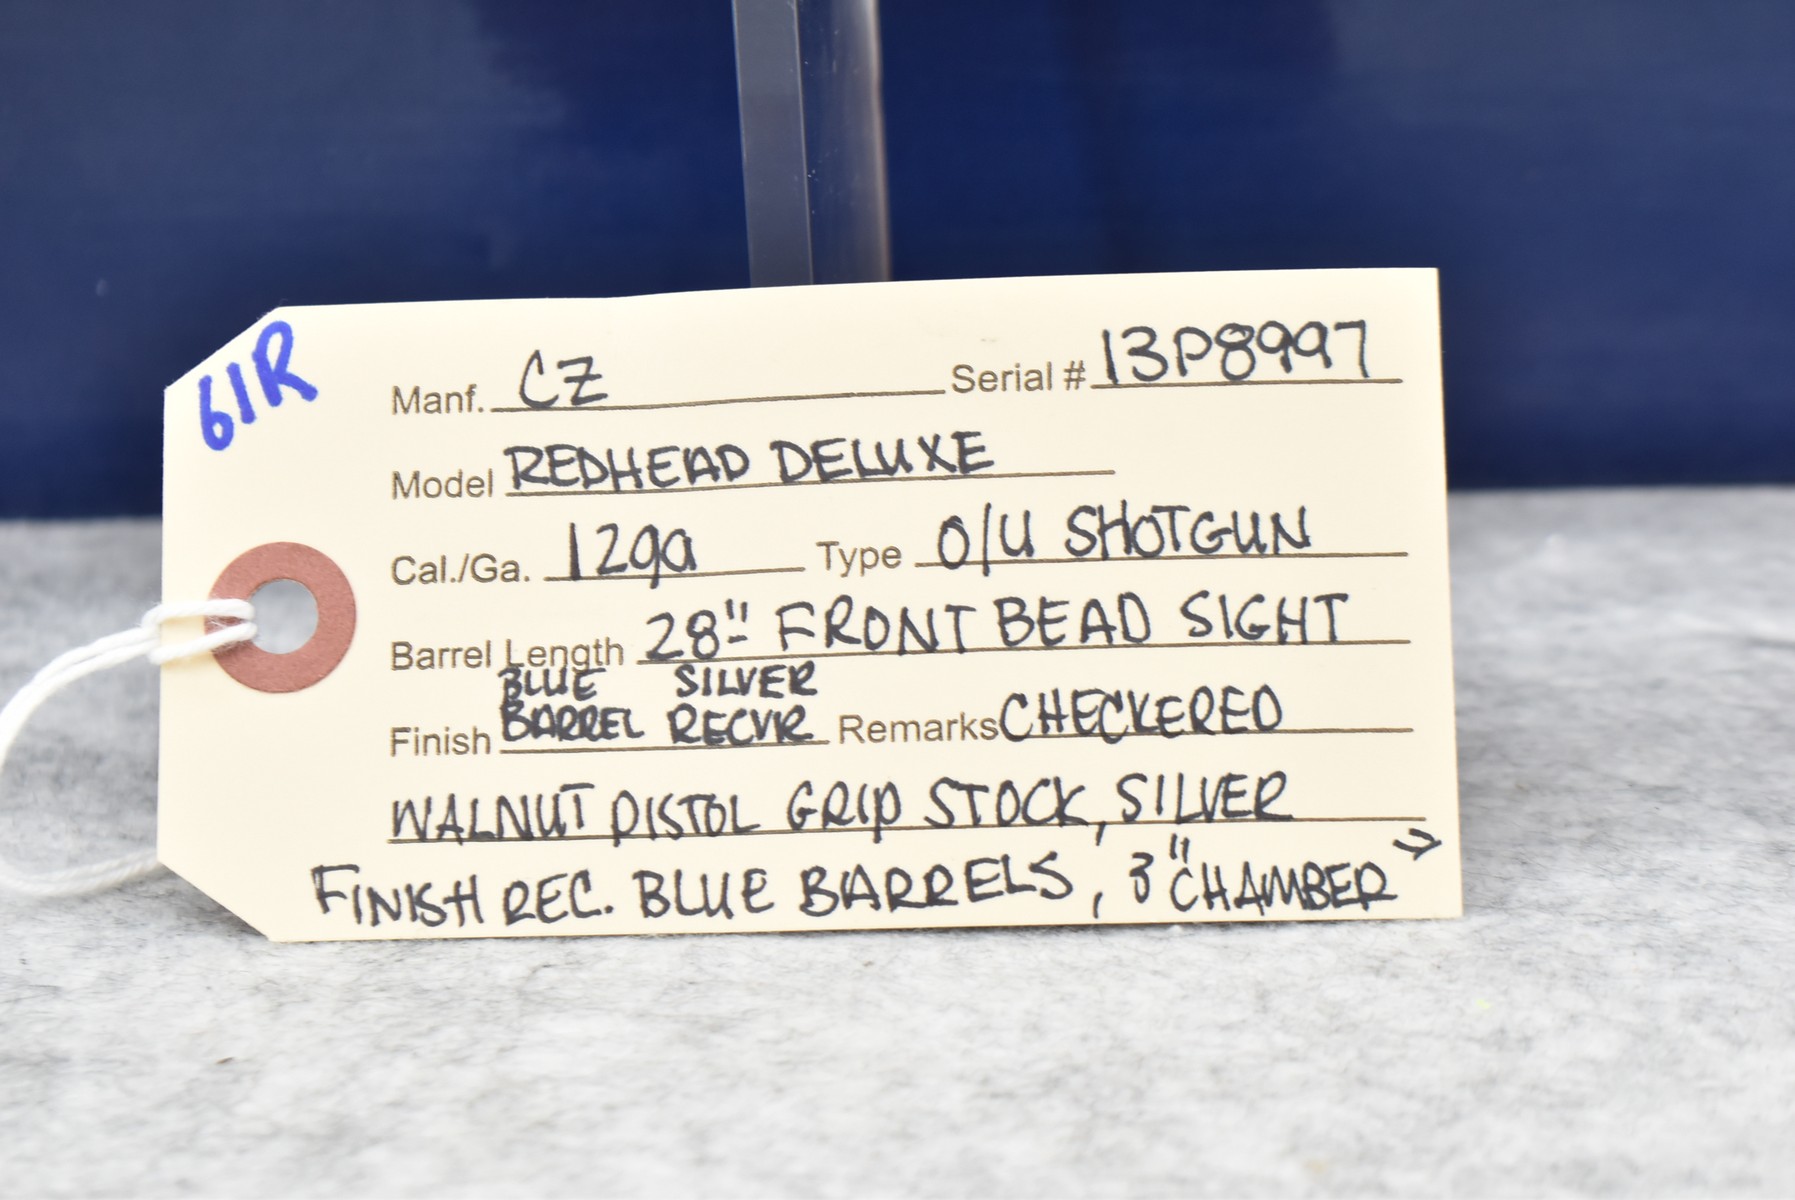 61R
Manf. CZ Serial # 13P8997
Model REDHEAD DELUXE
Cal./Ga. 12ga Type O/U SHOTGUN
Barrel Length 28" FRONT BEAD SIGHT
BLUE SILVER
Finish BARREL RECVR Remarks CHECKERED
WALNUT PISTOL GRIP STOCK, SILVER
FINISH REC. BLUE BARRELS, 3" CHAMBER →